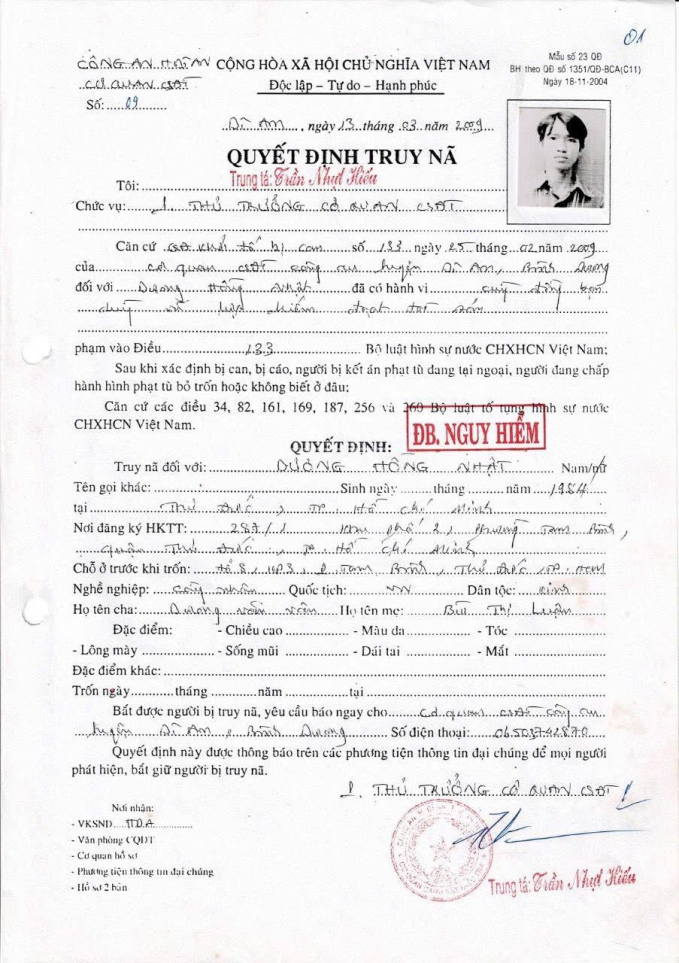 01
CÔNG AN H.DĨ AN CỘNG HÒA XÃ HỘI CHỦ NGHĨA VIỆT NAM
CƠ QUAN CSĐT Độc lập – Tự do – Hạnh phúc
Số: 09
Mẫu số 23 QĐ
BH theo QĐ số 1351/QĐ-BCA(C11)
Ngày 18-11-2004
Dĩ An, ngày 13 tháng 03 năm 2009
QUYẾT ĐỊNH TRUY NÃ
Tôi: Trung tá: Trần Nhựt Hiếu
Chức vụ: THỦ TRƯỞNG CƠ QUAN CSĐT
Căn cứ QĐ khởi tố bị can số 133 ngày 25 tháng 02 năm 2009
của cơ quan CSĐT công an huyện Dĩ An, Bình Dương
đối với Dương Hồng Nhật đã có hành vi cùng đồng bọn
chiếm đoạt tài sản
phạm vào Điều 133 Bộ luật hình sự nước CHXHCN Việt Nam;
Sau khi xác định bị can, bị cáo, người bị kết án phạt tù đang tại ngoại, người đang chấp
hành hình phạt tù bỏ trốn hoặc không biết ở đâu;
Căn cứ các điều 34, 82, 161, 169, 187, 256 và 260 Bộ luật tố tụng hình sự nước
CHXHCN Việt Nam.
ĐB. NGUY HIỂM
QUYẾT ĐỊNH:
Truy nã đối với: DƯƠNG HỒNG NHẬT Nam/nữ
Tên gọi khác: Sinh ngày tháng năm 1984
tại Thủ Đức, TP. Hồ Chí Minh
Nơi đăng ký HKTT: 287/1 Khu phố 2, phường Tam Bình,
quận Thủ Đức, TP. Hồ Chí Minh
Chỗ ở trước khi trốn: tổ 8, KP3, P. Tam Bình, Thủ Đức, TP. HCM
Nghề nghiệp: công nhân Quốc tịch: VN Dân tộc: kinh
Họ tên cha: Dương Văn Họ tên mẹ: Bùi Thị Luận
Đặc điểm: - Chiều cao - Màu da - Tóc
- Lông mày - Sống mũi - Dái tai - Mắt
Đặc điểm khác:
Trốn ngày tháng năm tại
Bắt được người bị truy nã, yêu cầu báo ngay cho cơ quan CSĐT công an
huyện Dĩ An, Bình Dương Số điện thoại: 06503742870
Quyết định này được thông báo trên các phương tiện thông tin đại chúng để mọi người
phát hiện, bắt giữ người bị truy nã.
THỦ TRƯỞNG CƠ QUAN CSĐT
Nơi nhận:
- VKSND H.D.A
- Văn phòng CQĐT
- Cơ quan hồ sơ
- Phương tiện thông tin đại chúng
- Hồ sơ 2 bản
Trung tá: Trần Nhựt Hiếu